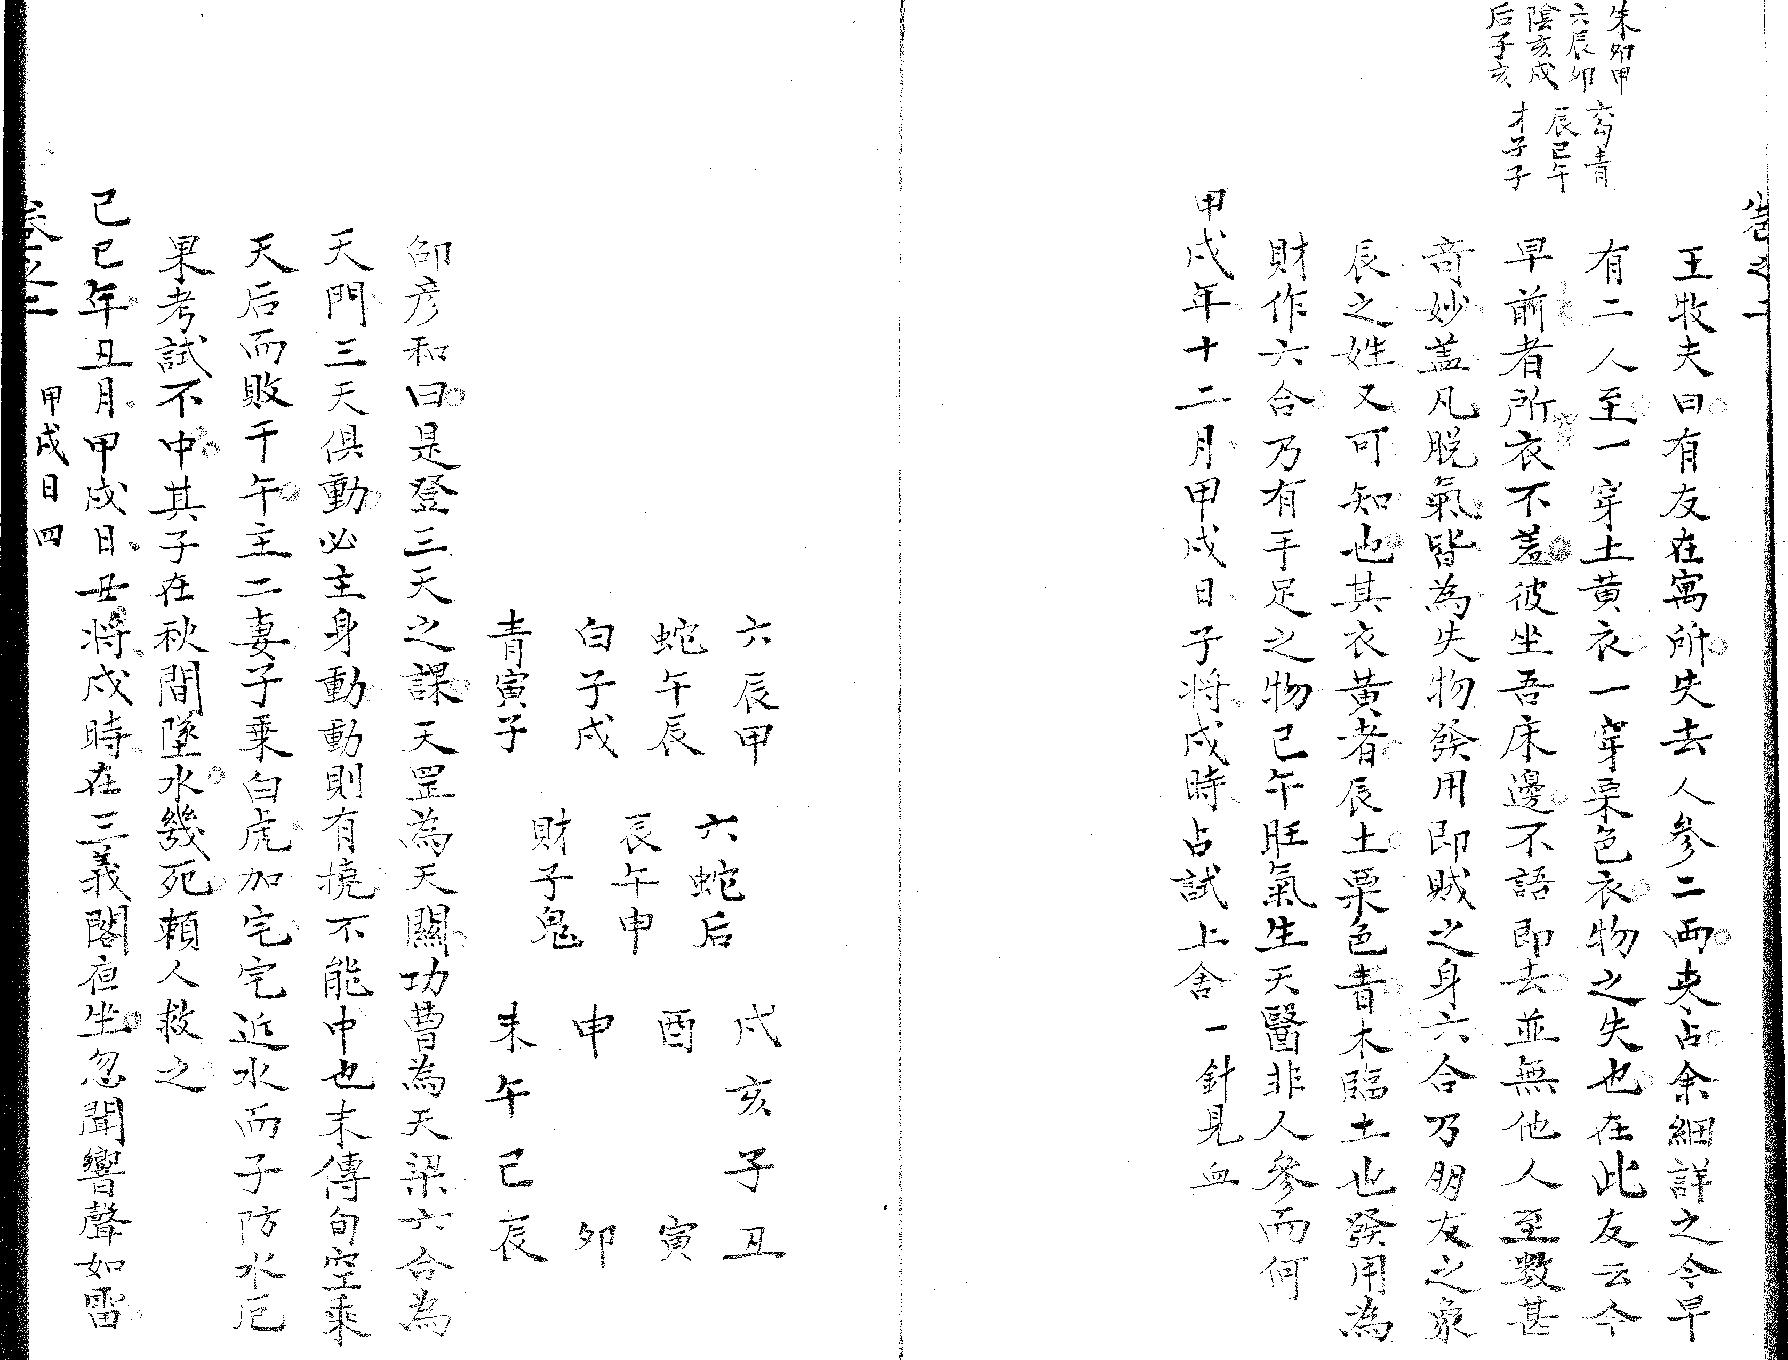 朱卯甲
六辰卯
陰亥戌
后子亥
玄勾青
辰巳午
才子子
卷之二
王牧夫曰有友在寓所失去人參二兩來占余細詳之今早
有二人至一穿土黃衣一穿栗色衣物之失也在此友云今
早前者所衣不差彼坐吾床邊不語即去並無他人至數甚
奇妙蓋凡脫氣皆為失物發用即賊之身六合乃朋友之象
辰之姓又可知也其衣黃者辰土栗色青木臨土也發用為
財作六合乃有手足之物巳午旺氣生天醫非人參而何
甲戌年十二月甲戌日子將戌時占試上舍一針見血
六辰甲
蛇午辰
白子戌
青寅子
六蛇后
辰午申
財子鬼
戌亥子丑
酉 寅
申 卯
未午巳辰
邵彥和曰是登三天之課天罡為天關功曹為天梁六合為
天門三天俱動必主身動動則有撓不能中也末傳旬空乘
天后而敗于午主二妻子乘白虎加宅宅近水而子防水厄
果考試不中其子在秋間墜水幾死賴人救之
己巳年丑月甲戌日丑將戌時在三義閣夜坐忽聞響聲如雷
卷之二 甲戌日四